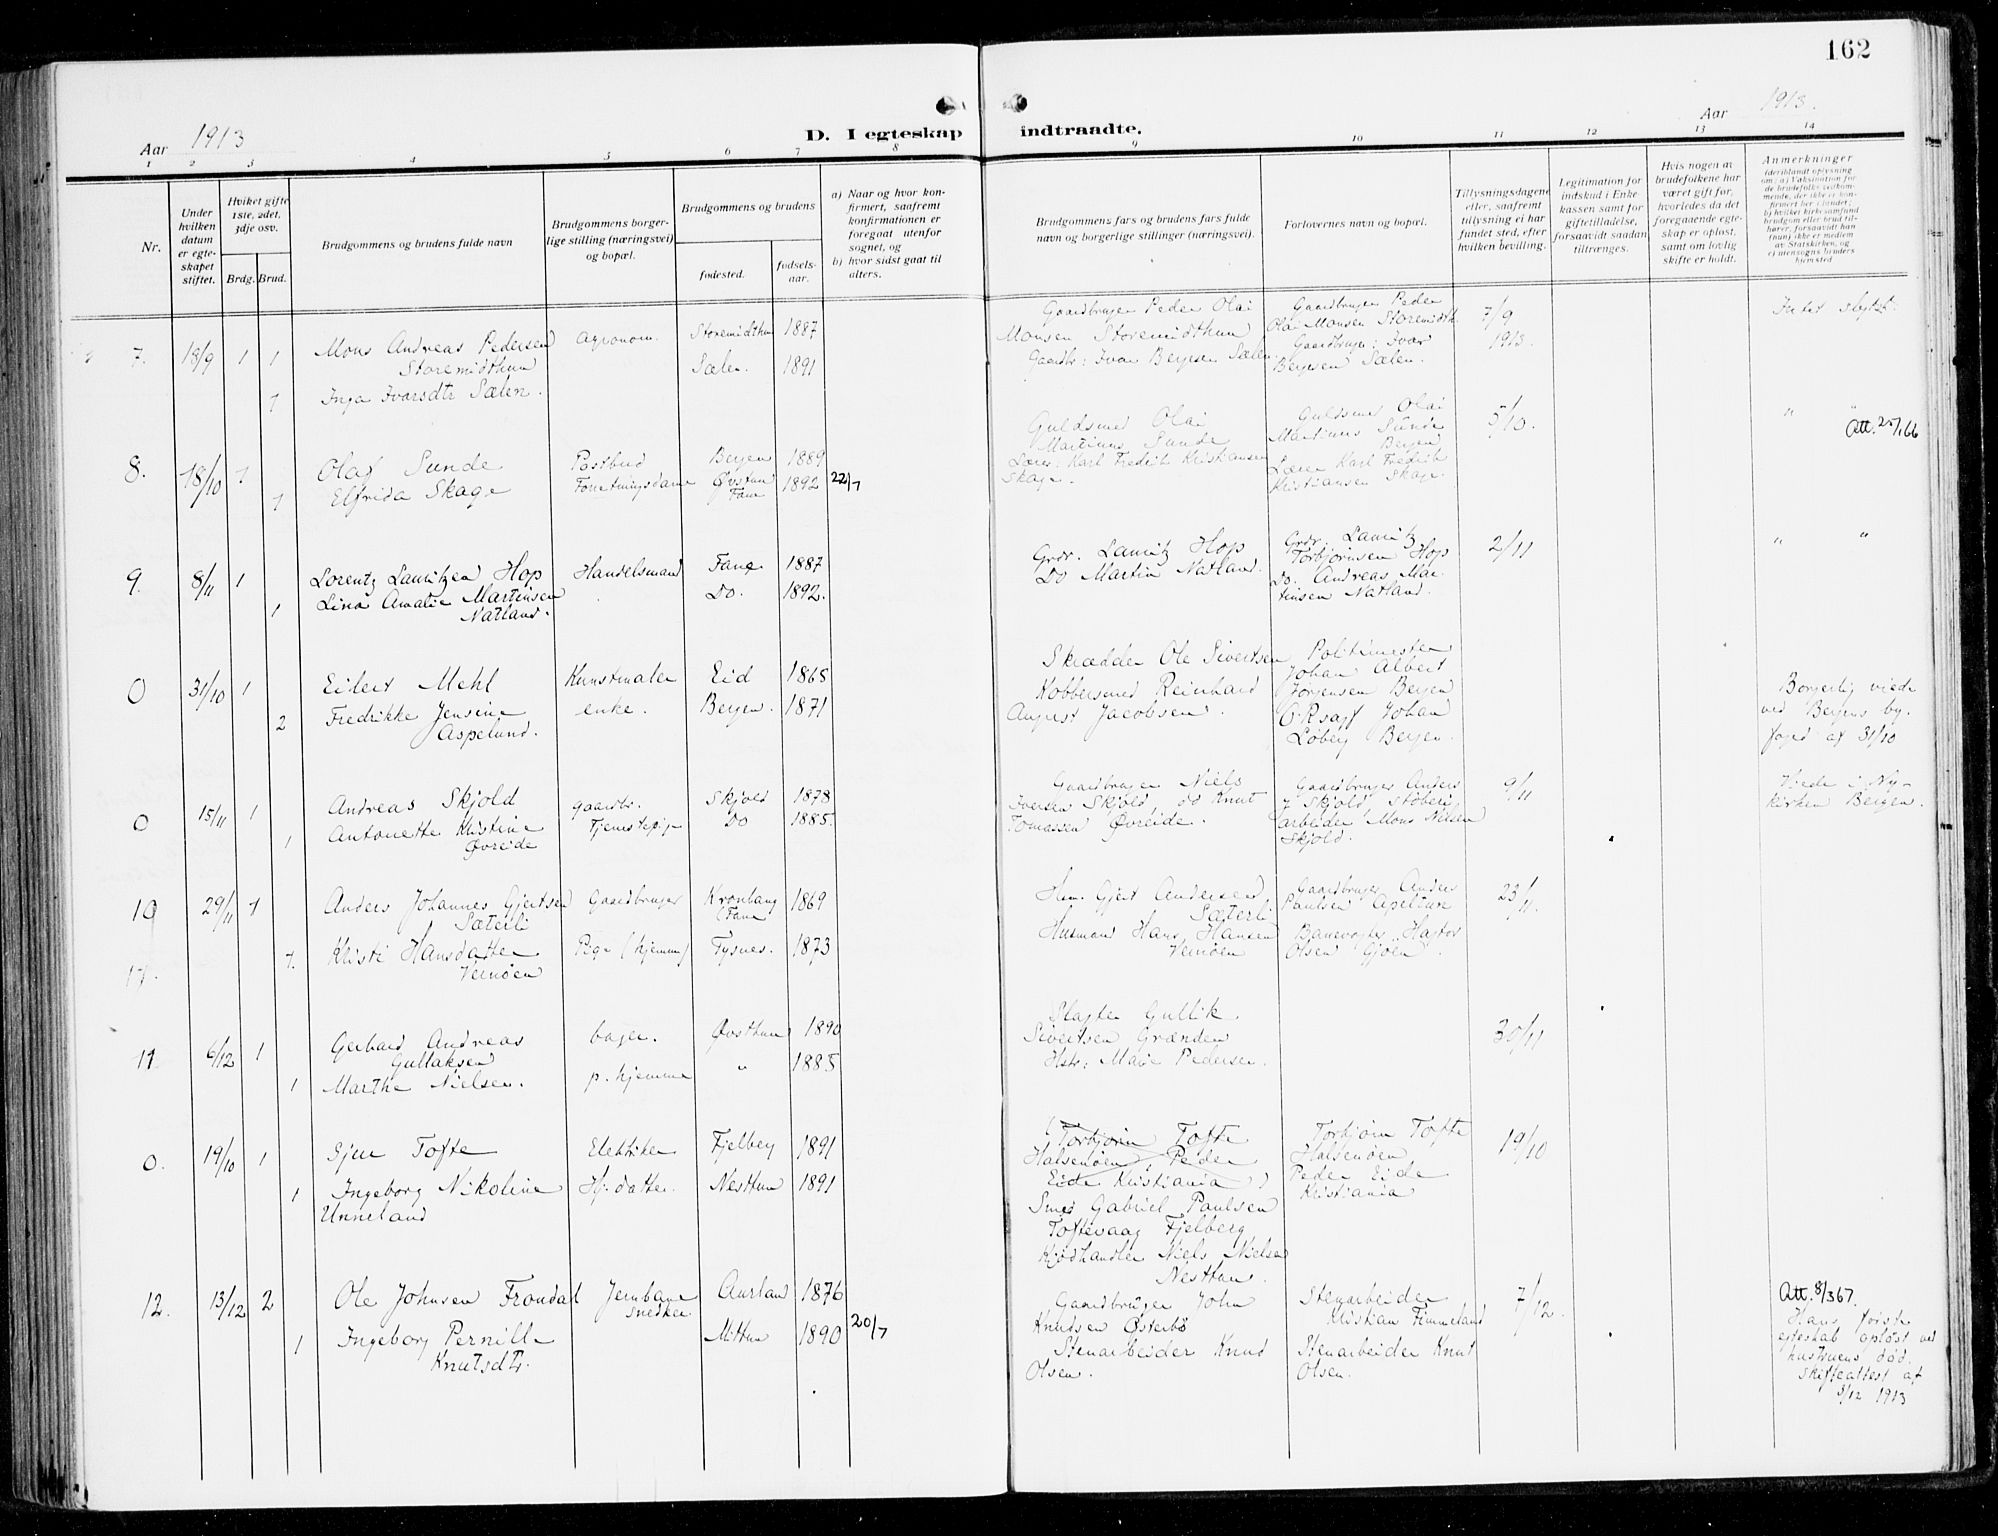 162
Aar 1913
D. I egteskap indtraadte.
Aar 1913.
1 2 3 4 5 6 7 8 9 10 11 12 13 14
Nr.
Under
hvilken
datum
er egte-
skapet
stiftet.
Hviket gifte
1ste, 2det,
3dje osv.
Brdg. Brud.
Brudgommens og brudens fulde navn
Brudgommens borger-
lige stilling (næringsvei)
og bopæl.
Brudgommens og brudens
fødested.
fødsels-
aar.
a) Naar og hvor kon-
firmert, saafremt
konfirmationen er
foregaat utenfor
sognet, og
b) hvor sidst gaat til
alters.
Brudgommens fars og brudens fars fulde
navn og borgerlige stillinger (næringsvei).
Forlovernes navn og bopæl.
Tillysningsdagene
eller, saafremt
tillysning ei har
fundet sted, efter
hvilken bevilling.
Legitimation for
indskud i Enke-
kassen samt for
giftetilladelse,
forsaavidt saadan
tiltrænges.
Hvis nogen av
brudefolkene har
været gift før,
hvorledes da det
foregaaende egte-
skap er opløst,
samt om lovlig
skifte er holdt.
Anmerkninger
(deriblandt oplysning
om: a) Vaksination for
de brudefolks vedkom-
mende, der ikke er kon-
firmert her i landet;
b) hvilket kirkesamfund
brudgom eller brud til-
hører, forsaavidt han
(hun) ikke er medlem
av Statskirken, og
c) mensogns bruders
hjemsted
7. 18/9 1 1
Mons Andreas Pedersen
Storemidthun
1
Inga Ivarsdtr Sælen.
Agronom.
Storemidthun 1887
Sælen. 1891
Gaardbruger Peder Olai
Monsen Storemidthun
Gaardbr: Ivar Bergesen Sælen.
Gaardbruger Peder
Olai Monsen Storemidth
Gaardbruger: Ivar
Bergesen Sælen.
7/9
1913.
Intet skyldt.
8. 18/10 1
Olaf Sunde
Elfrida Skage
1
Postbud
Bergen 1889
Øvstun 1892 22/7
Fane
Guldsmed Olai
Martinus Sunde
Lærer: Karl Fredrik Kristiansen
Skage.
Guldsmed Olai
Martinus Sunde
Bergen
Lærer Karl Fredrik
Kristiansen Skage
5/10.
" "
Att.
9. 8/11 1
Lorentz Lauritzen Hop
Lina Amalie Martinsen
1 Natland.
Handelsmand
Fane 1887
Do. 1892.
Grdr. Lauritz Hop
Do Martin Natland.
Grdr. Lauritz
Torbjørnsen Hop
Do. Andreas Mar-
tinsen Natland.
2/11
" "
0 31/10 1
Eilert Mehl
Fredrikke Jensine
2 Aspelund.
Kunstmaler
enke.
Eid 1865
Bergen. 1871
Skrædder Ole Sivertsen
Kobbersmed Reinhard
August Jacobsen.
Politimester
Johan Albert
Jørgensen Bergen
O.R.sagf Johan
Løberg Bergen.
Borgerlig viede
ved Bergens by-
foged af 31/10
0 15/11 1
Andreas Skjold
Antonette Kristine
1 Øvreide
gaardbr.
Tjenestepige
Skjold 1878
Do 1885.
Gaardbruger Niels
Iversen Skjold, do Knut
Tomassen Øvreide.
Gaardbruger Anders
J Skjold, støberi
arbeider Mons Nilsen
Skjold.
9/11
Viede i Ny-
kirken Bergen.
10 29/11 1
Anders Johannes Gjertsen
Sæterli
17. 1.
Kristi Hansdatter
Vernøen
Gaardbruger
Pige (hjemme)
Kronbang
(Fane 1869
Tysnes. 1873
Hsm. Gjert Andersen
Sæterli
Husmand Hans Hansen
Vernøen
Gaardbruger Anders
Paulsen Apeltun
Banevogter Hagtor
Olsen Gjøen.
23/11.
11 6/12 1
Gerhard Andreas
Gullaksen
1 Marthe Nielsen.
bager.
p. hjemme
Øvsthun 1890
" 1885
Slagter Gullik
Sivertsen Grønden
Hstr: Marie Pedersen.
30/11
0. 19/10 1
Sjur Tofte
1 Ingeborg Nikoline
Unneland
Elektriker
Hj. datter.
Fjelberg 1891
Nesttun 1891
(Torbjørn Tofte
Halsenøen, Peder
Eide Kristiania)
Smed Gabriel Paulsen
Toftevaag Fjelberg
Kjødhandler Niels Nielsen
Nesttun.
Torbjørn Tofte
Halsenøen
Peder Eide
Kristiania
19/10
12. 13/12 2
Ole Johnsen Frondal
1 Ingeborg Pernille
Knutsdtr.
Jernbane
snedker
Aurland 1876
Mittun 1890 20/7
Gaardbruger John
Knudsen Østerbø
Stenarbeider Knud
Olsen.
Stenarbeider
Kristian Fimmeland
Stenarbeider Knut
Olsen.
7/12.
Att. 8/3 67.
Hans første
egteskab opløst ved
hustruens død.
Skifteattest af
3/12 1913